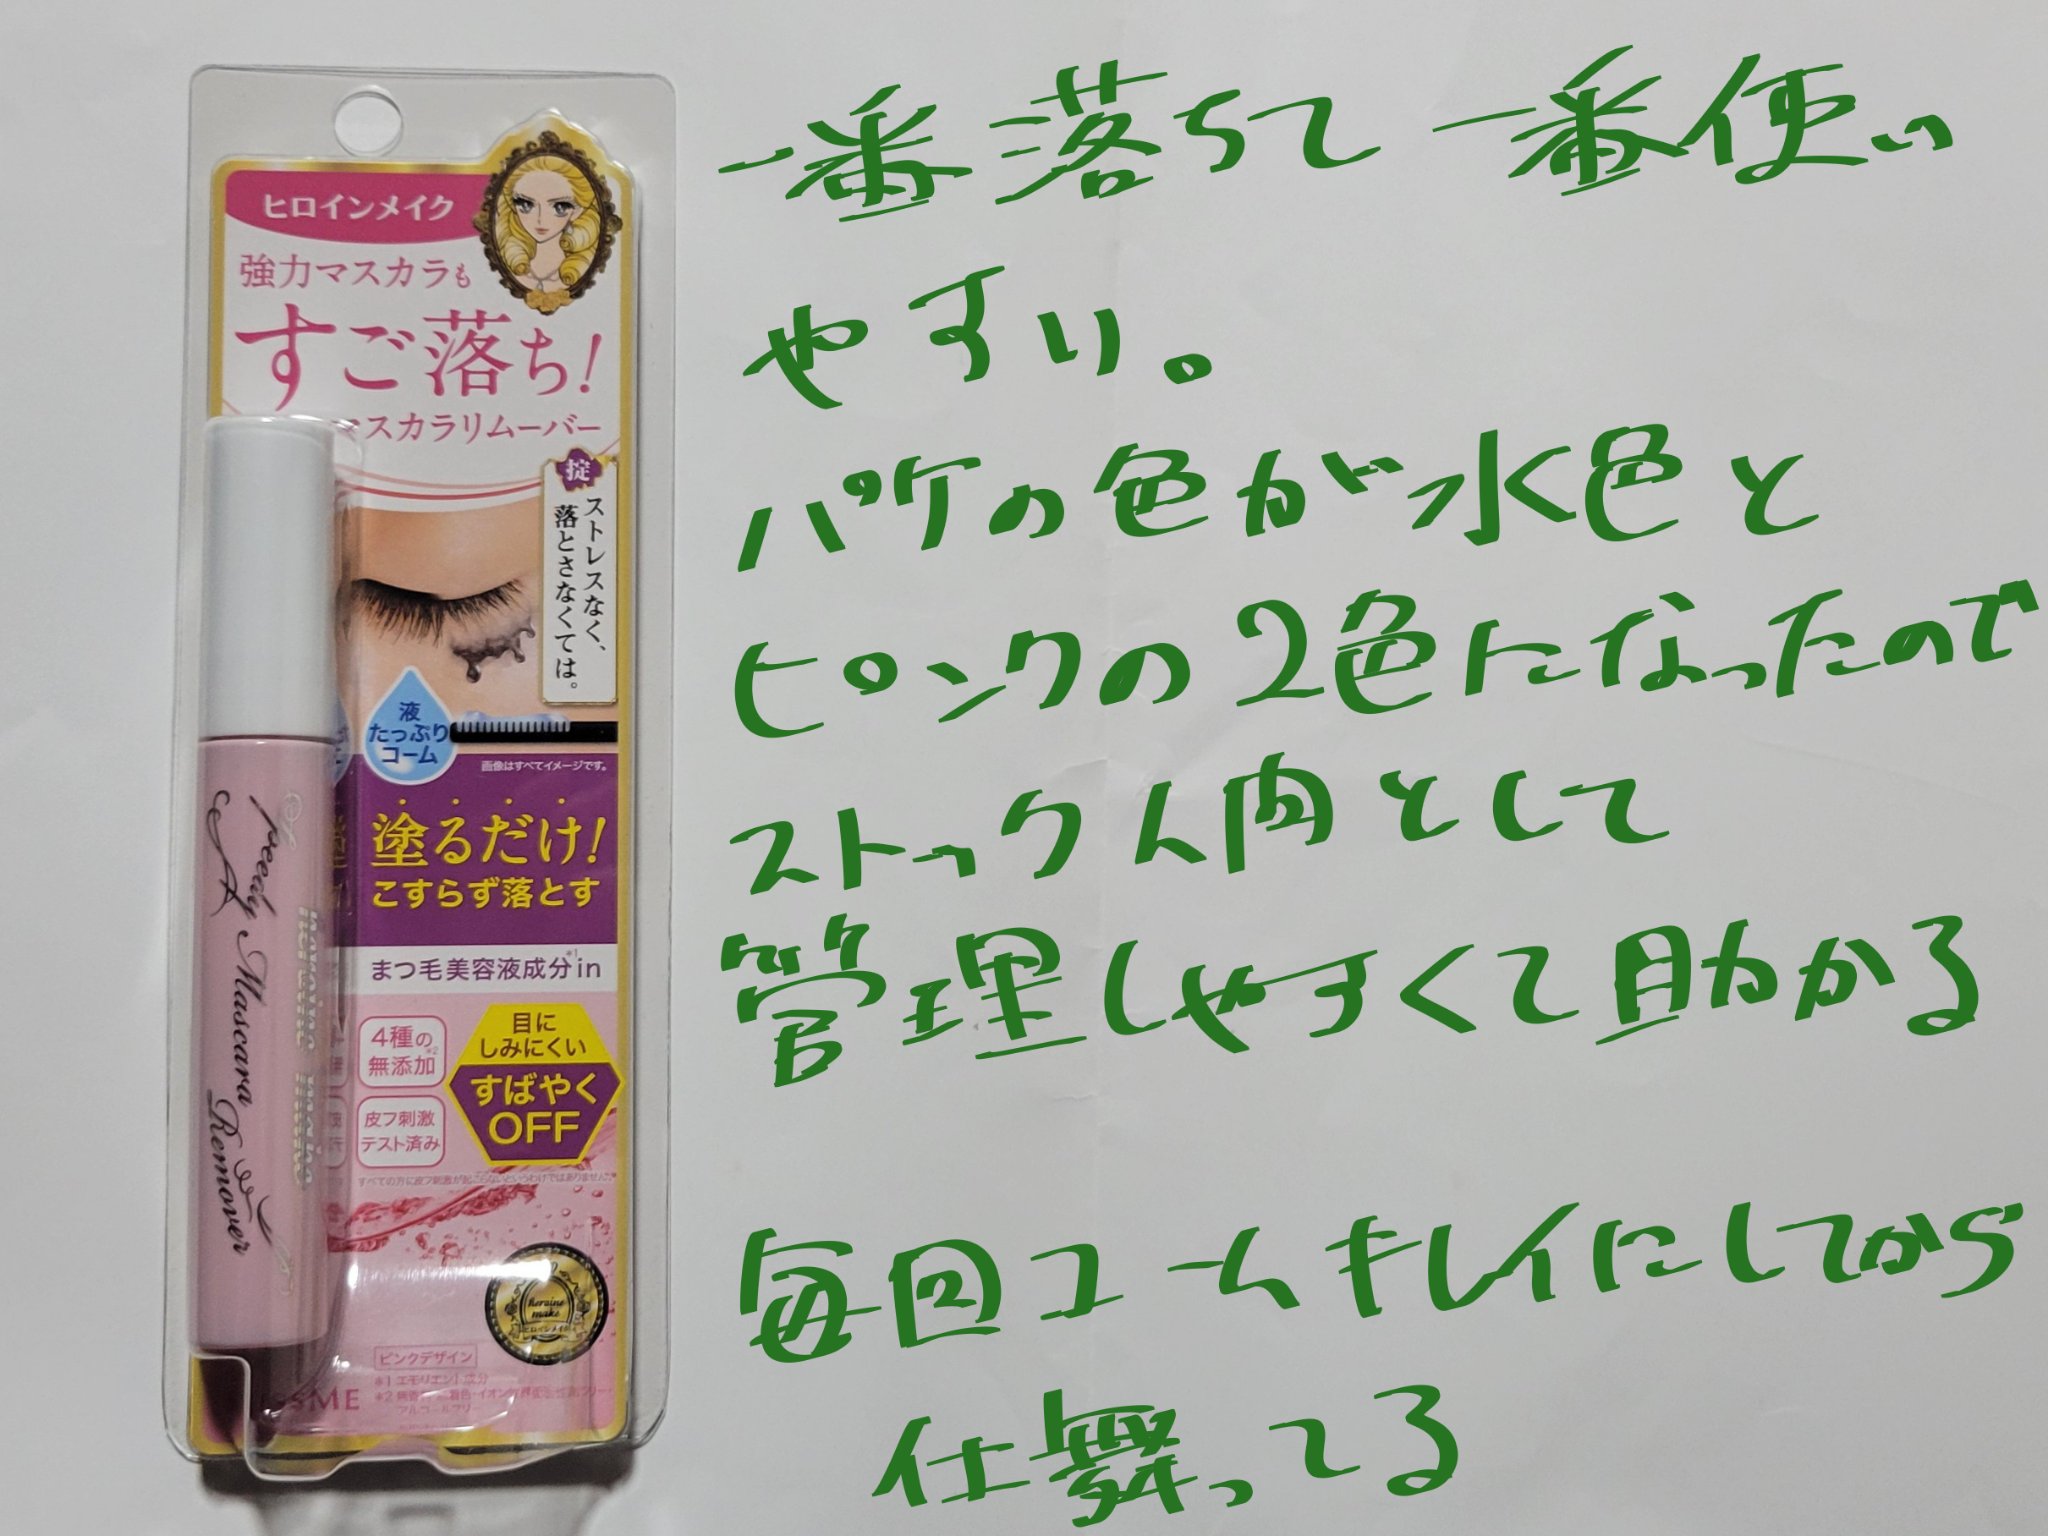 ヒロインメイク
強力マスカラも
すご落ち!
マスカラリムーバー
掟
ストレスなく、
落とさなくては。
液
たっぷり
コーム
画像はすべてイメージです。
塗るだけ!
こすらず落とす
まつ毛美容液成分*1in
4種の*2
無添加
皮フ刺激
テスト済み
目に
しみにくい
すばやく
OFF
すべての方に皮フ刺激が起こらないというわけではありません。
heroine
make
ヒロインメイク
ピンクデザイン
*1 エモリエント成分
アルコールフリー
Speedy Mascara Remover
一番落ちて一番使い
やすい。
パケの色が水色と
ピンクの2色になったので
ストック人肉として
管理しやすくて助かる
毎回コームキレイにしてから
仕舞ってる